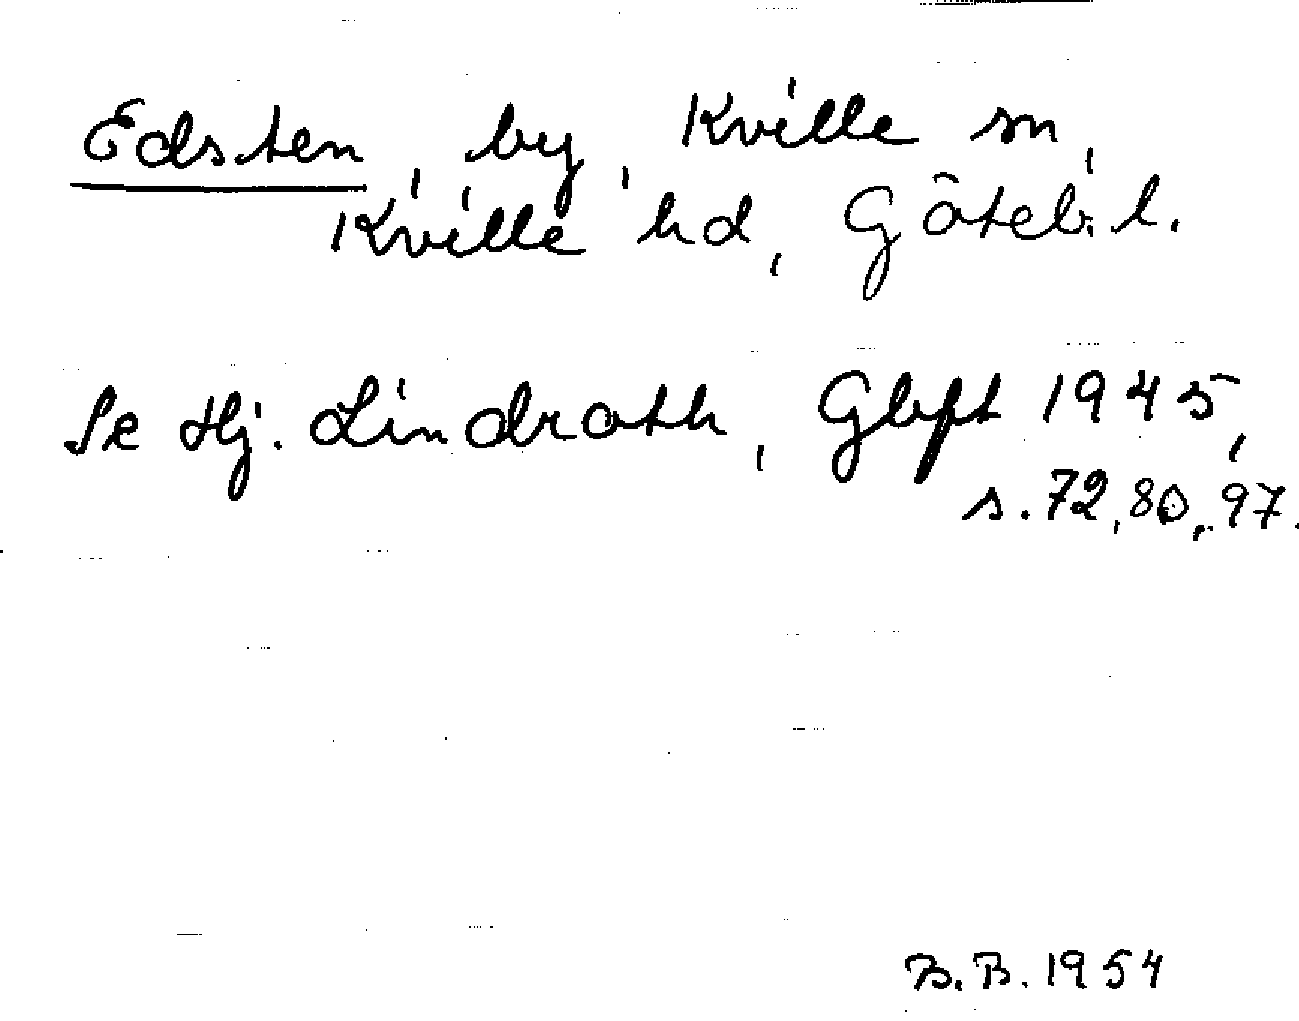 Edsten, by, Kville sn,
Kville hd, Göteb. l.
Se Hj. Lindroth, Gbgft 1945,
s. 72, 80, 97.
B. B. 1954